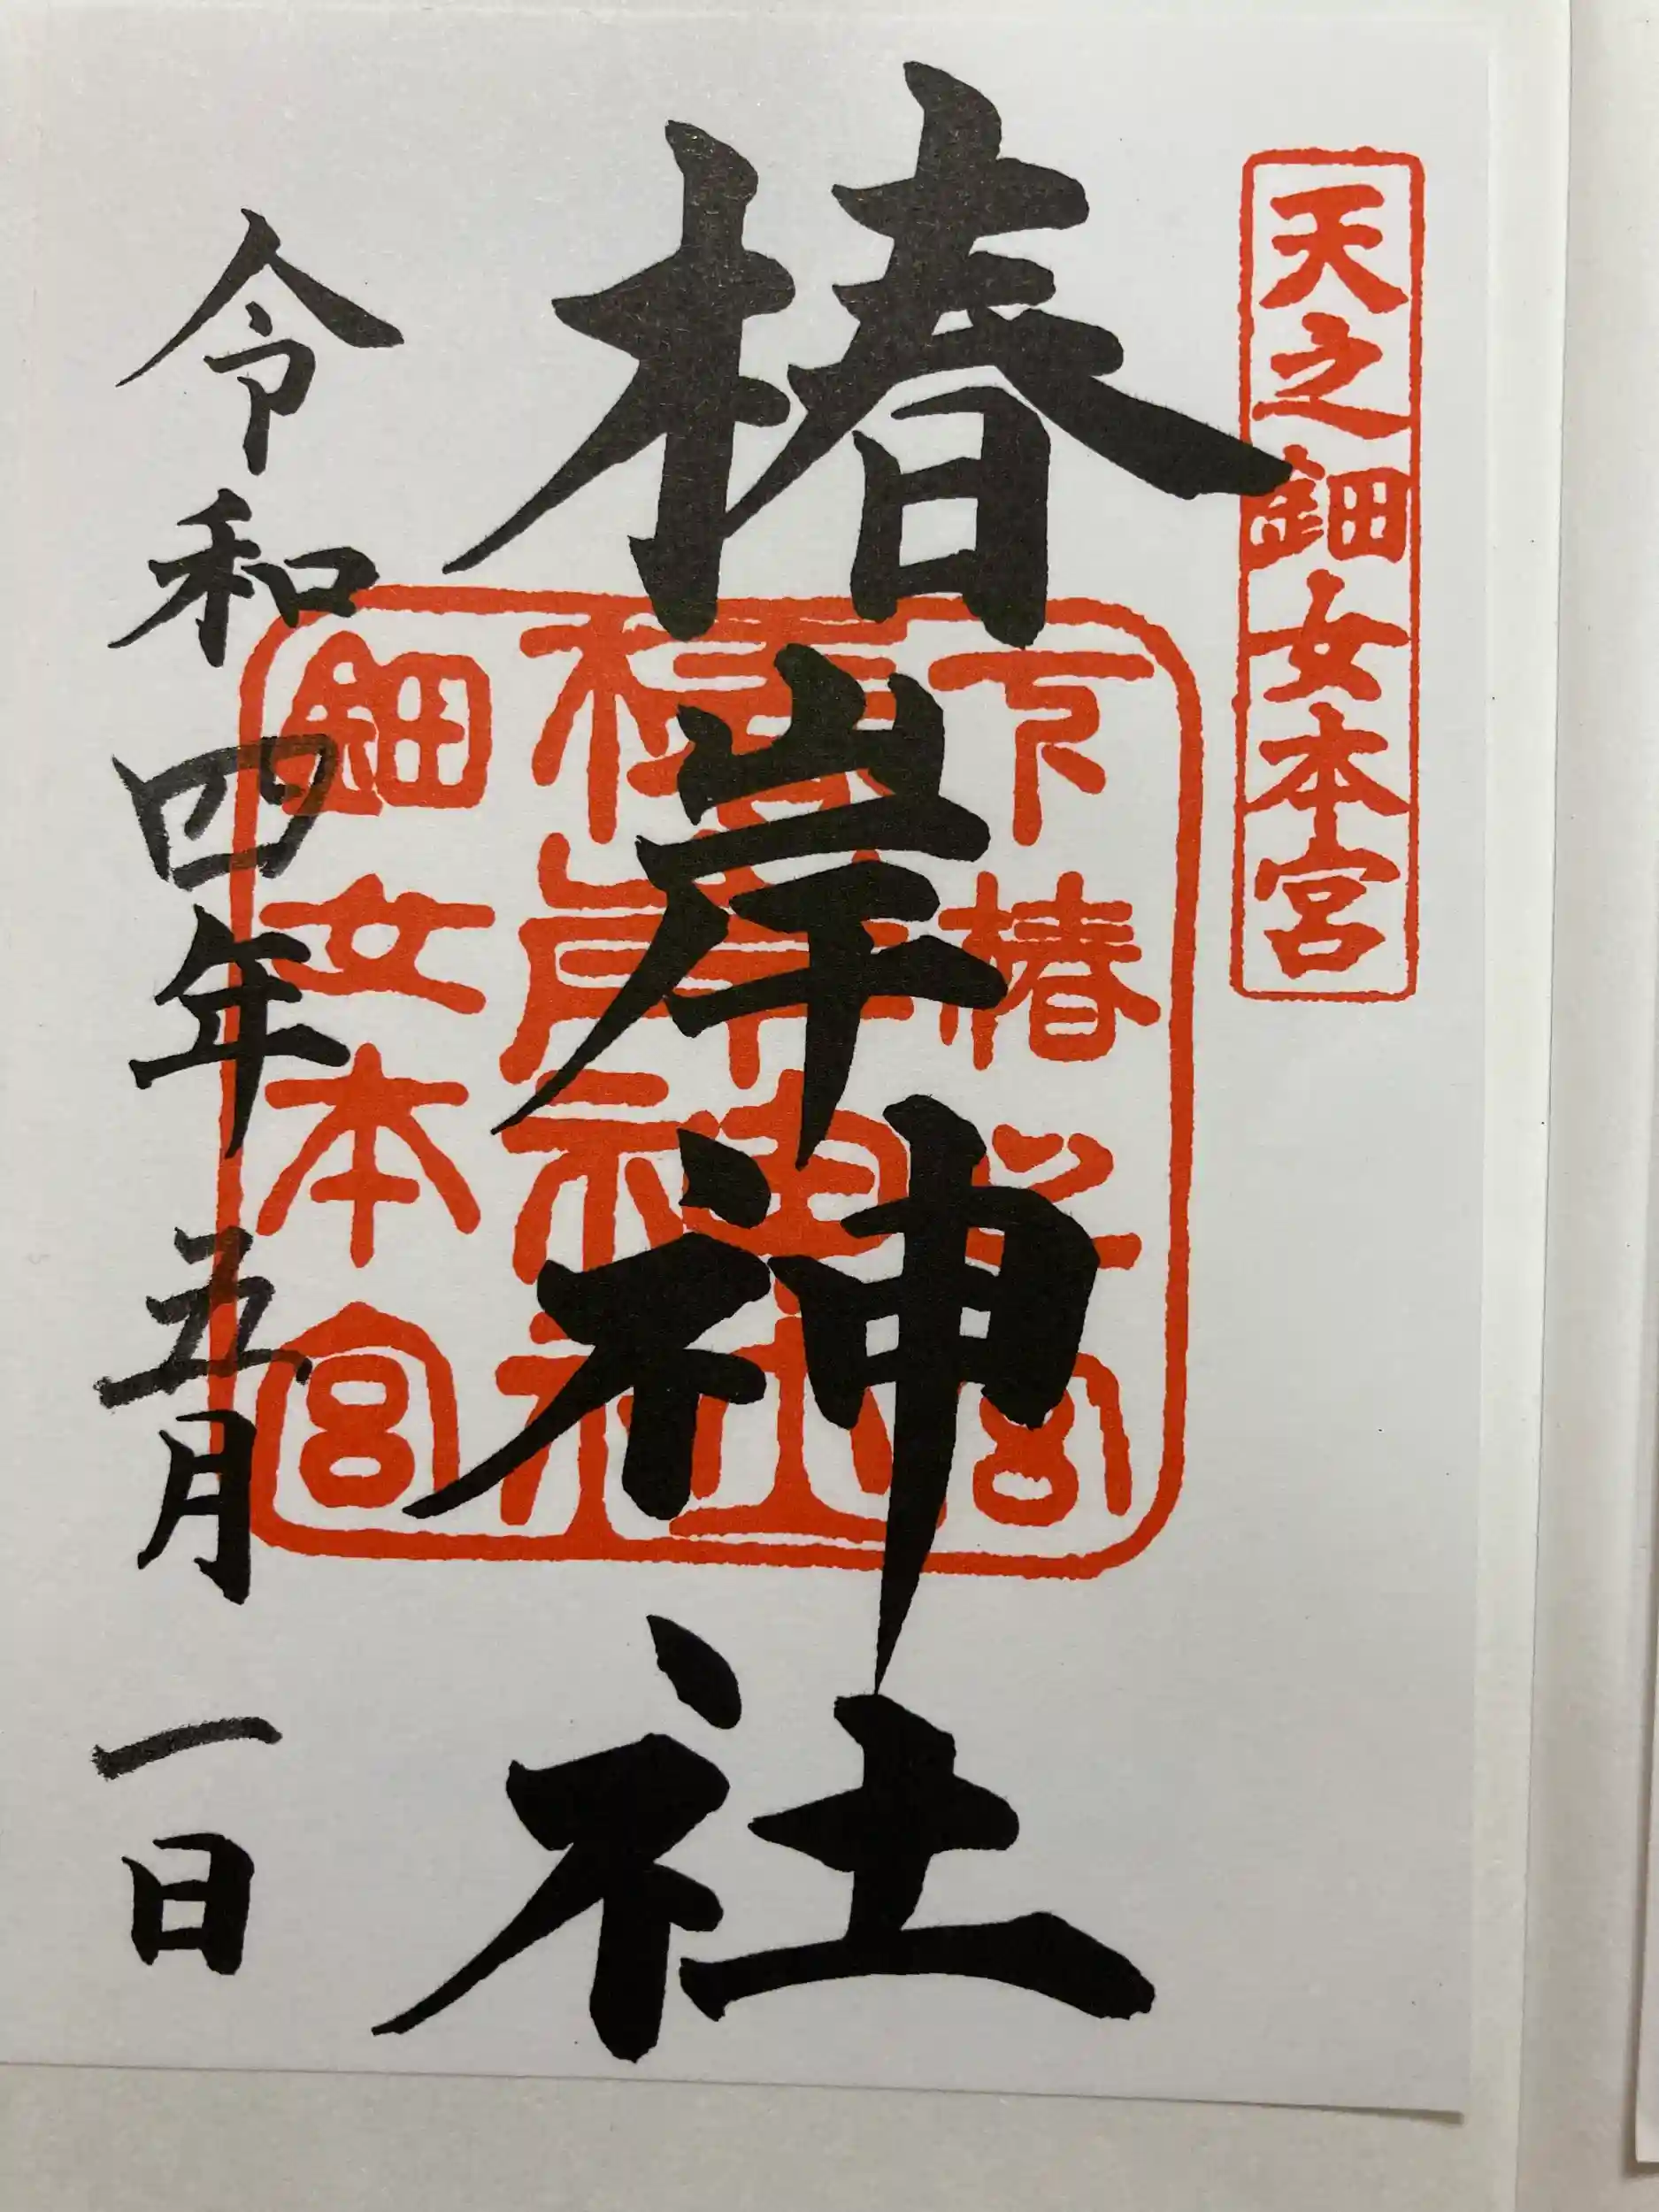 天之鈿女本宮
椿岸神社
下椿之宮
椿岸神社
鈿女本宮
令和四年五月一日